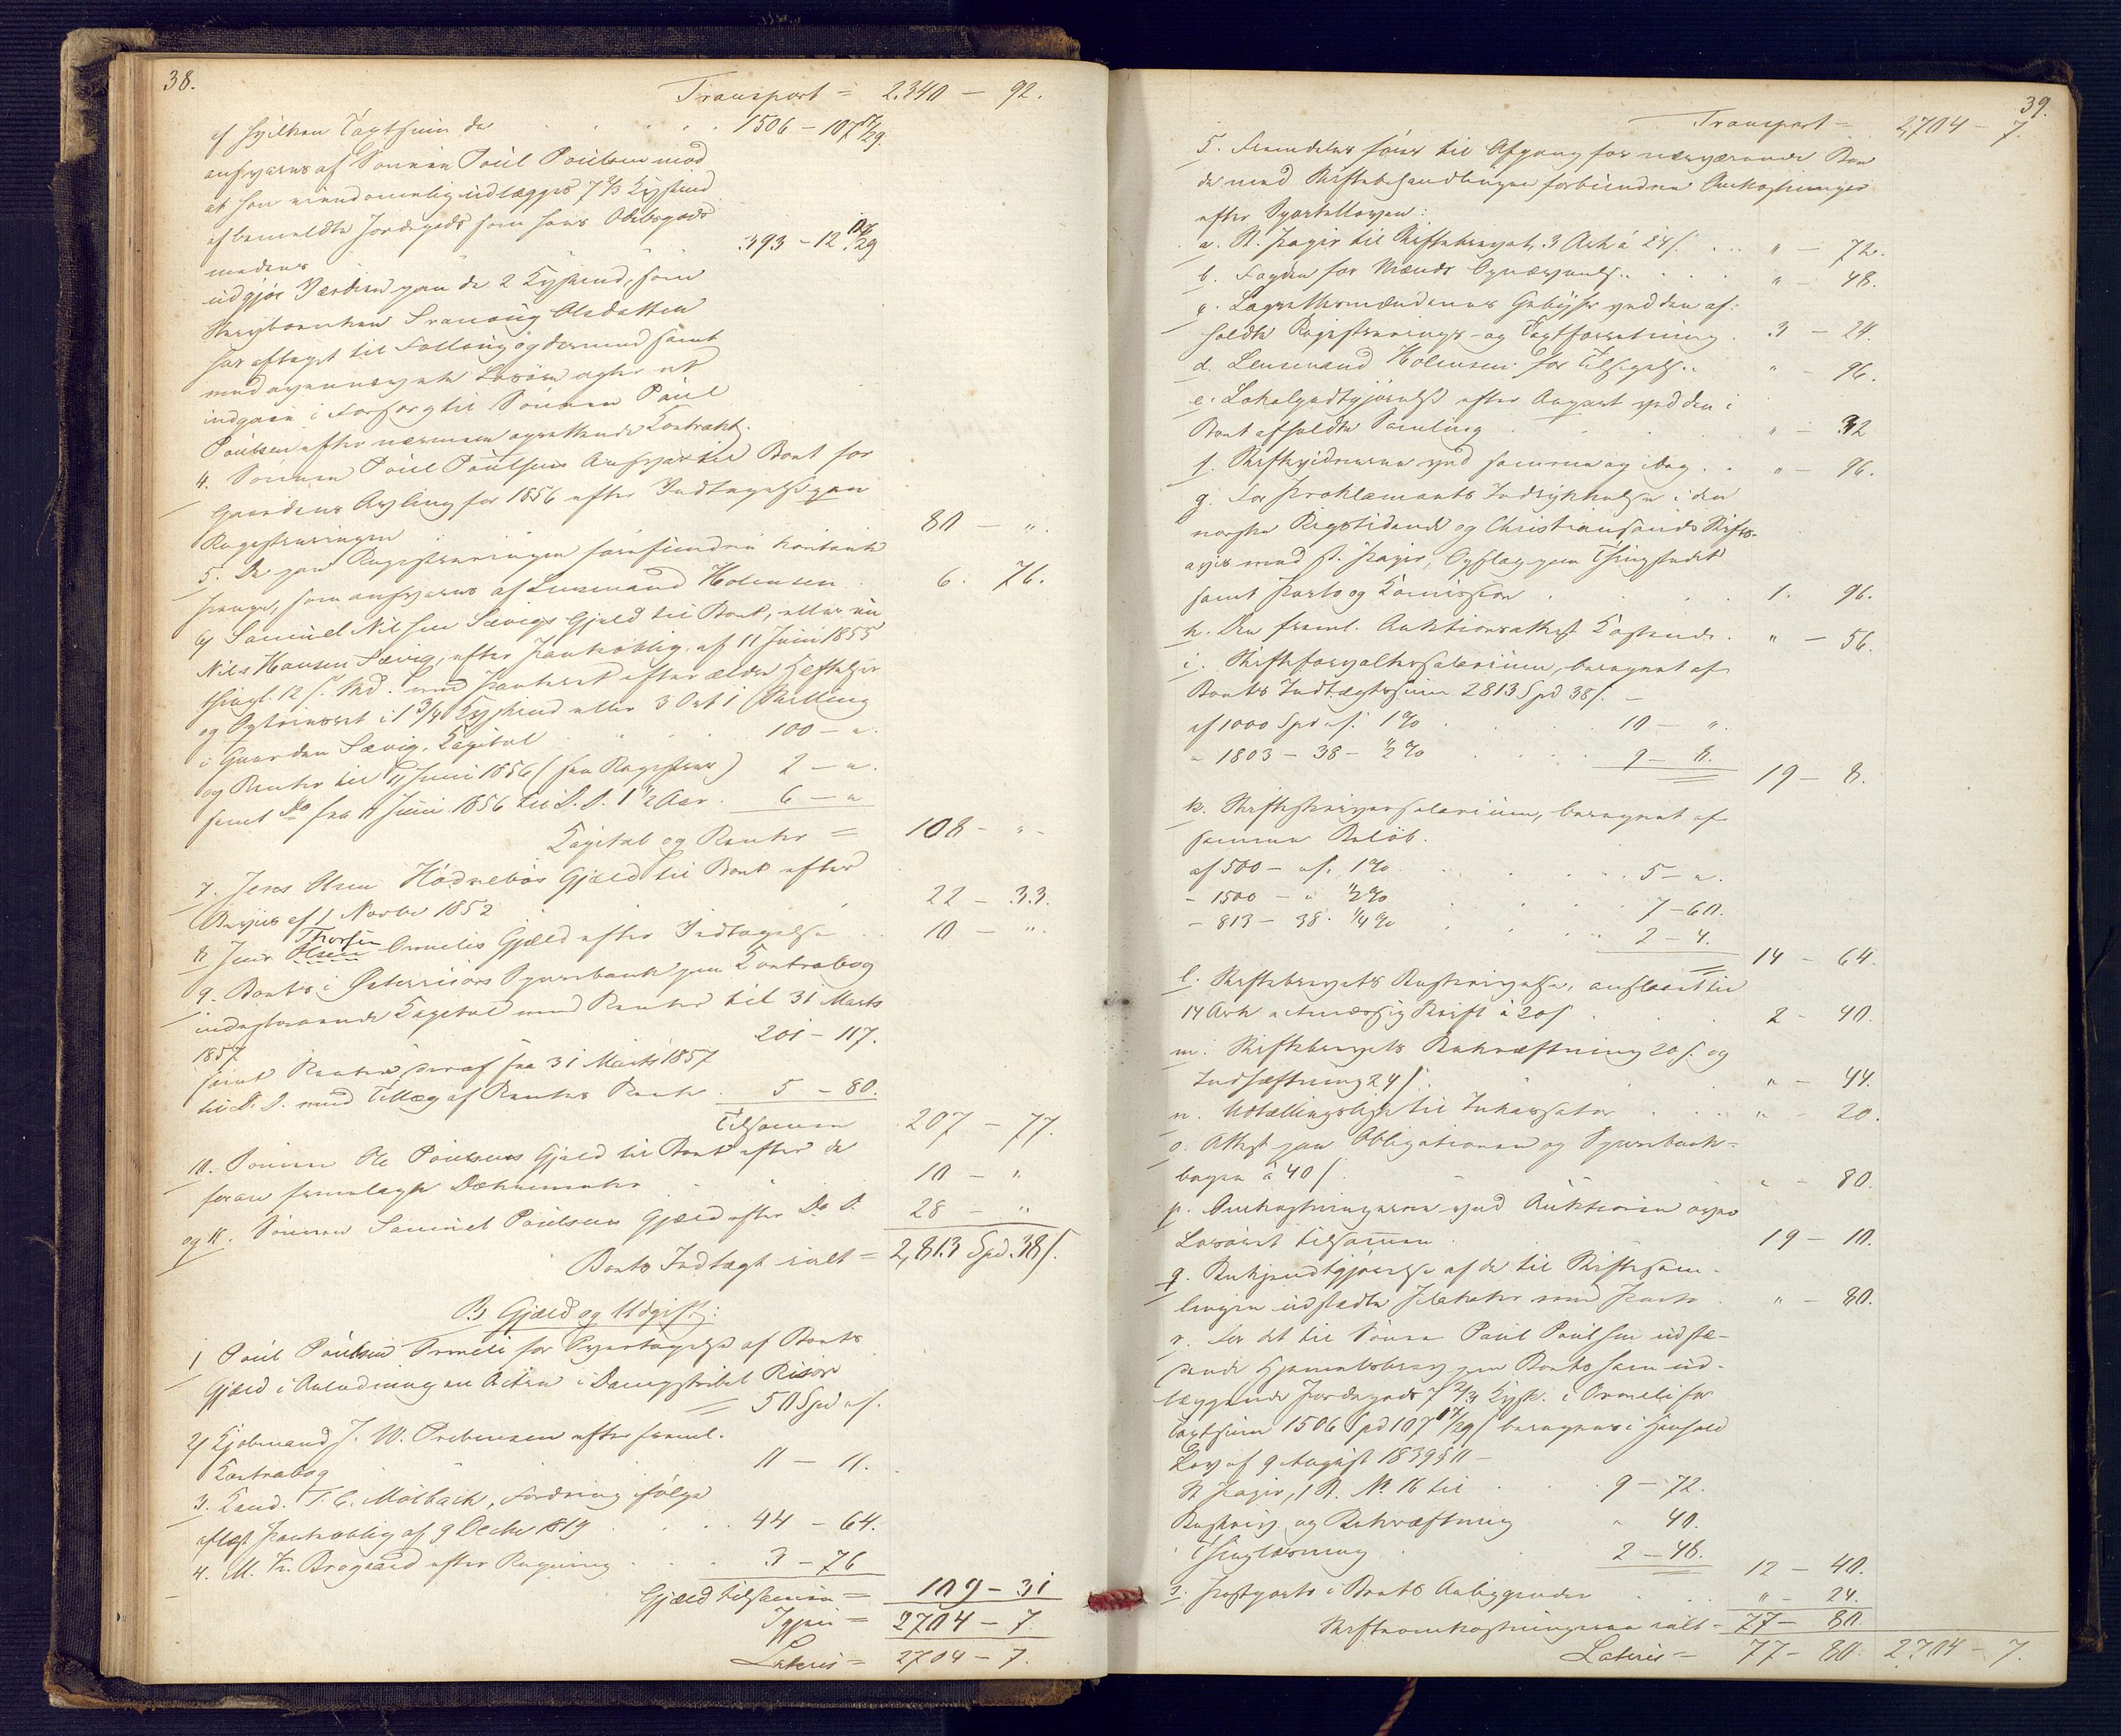 38.
Transport = 2.340 — 92.
af hvilken Taxtsum de 1506 – 107 17/29.
ansvares af Sønnen Poul Poulsen mod
at han eiendommelig udlægges 7 2/3 Kyshud
af bemeldte Jordegods som hans Odelsgods
medens 393 – 12 12/29
udgjør Værdien paa de 2 Kyshud, som
Stervboenken Olsdatter
har aftaget til Follaug og dermed samt
med ovennævnte Løsøre agter at
indgaae i Forsorg til Sønnen Poul
Poulsen efter nærmere oprettende Kontrakt.
4. Sønnen Poul Poulsens Ansvar til Boet for
Gaardens Avling for 1856 efter Vedtagelse paa
Registreringen 80 — ".
5. De paa Registreringen forefundne kontante
Penge, som ansvares af Lensmand Holmsen 6. 76.
6) Samuel Nilsen Sævigs Gjæld til Boet, eller nu
Nils Hansen Sævig, efter Pantoblig. af 11 Juni 1855
thingl. 12 s. Md. med Panteret efter ældre Heftelser
og Optrinsret i 1 3/4 Kyshud eller 3 Ort 1 Skilling
i Gaarden Sævig, Kapital 100 — ".
og Renter til 11 Juni 1856 (fra Registrer) 2 — ".
samt Do fra 11 Juni 1856 til D. D. 1 1/2 Aar. 6 — "
Kapital og Renter = 108 – " –
7. Jens Olsen Hødnebøs Gjæld til Boet efter
Bevis af 1 Novbr 1852 22 – 33.
8 Jens Thorsen Olsen Ormelis Gjæld efter Vedtagelse 10 — ".
9. Boets i Østerrisørs Sparebank paa Kontrabog
indestaaende Kapital med Renter til 31 Marts
1857. 201 – 117.
samt Renter deraf fra 31 Marts 1857
til D. D. med Tillæg af Renters Rente. 5 – 80.
Tilsammen 207 – 77.
10. Sønnen Ole Poulsens Gjæld til Boet efter de
foran fremlagte Dokumenter 10 – "
og 11. Sønnen Samuel Poulsens Gjæld efter Do D. 28 – "
Boets Indtægt ialt = 2,813 Spd. 38 s.
B) Gjæld og Udgift:
1 Poul Poulsen Ormeli for Overtagelse af Boets
Gjæld i Anledning en Actie i Dampskibet Risør
= 50 Spd " s.
2) Kjøbmand J. W. Prebensen efter freml.
Kontrabog 11 — 11.
3. Kand. T. C. Mølbach, Fordring ifølge
aflæst Pantoblig af 9 Decbr 1819 44 – 64.
4. M. Kr. Brogaard efter Regning 3 – 76
Gjæld tilsammen = 109 – 31
Igjen = 2704 – 7.
Lateris = 2704 – 7.
39.
Transport = 2,704 – 7.
5. Fremdeles føres til Afgang for nærværende Bo
de med Skiftebehandlingen forbundne Omkostninger
efter Sportelloven:
a. St. Papir til Skiftebrevet, 3 Ark á 24 s. " – 72.
b. Fogden for Mænds Opnævnelse " – 48.
c. Lagrettesmændenes Gebyhr ved den af-
holdte Registrerings- og Taxtforretning 3 – 24.
d. Lensmand Holmsen for Tilsigelse " – 96.
e. Lokalgodtgjørelse efter Accord ved den i
Boet afholdte Samling " – 32
f. Skiftevidnerne ved samme og idag " – 96.
g. For Proklamaets Indrykkelse i den
norske Rigstidende og Christiansands Stifts-
avis med st. Papir, Opslag paa Thingstedet
samt Porto og Kommission 1. 96.
h. Den freml. Auktionsattest Kostende " – 56.
i. Skifteforvaltersalarium, beregnet af
Boets Indtægtssum 2813 Spd 38 s. –
af 1000 Spd " s. 1 % 10 – ".
" 1803 – 38 – 1/2 % 9 – 8.
19 – 8.
k. Skifteskriversalarium, beregnet af
samme Beløb.
af 500 – " s. 1 % 5 – ".
– 1500 – " 1/2 % 7 – 60.
– 813 – 38. 1/4 % 2 – 4.
14 – 64.
l. Skiftebrevets Beskrivelse, anslaaet til
14 Ark actmæssig Skrift á 20 s 2 – 40.
m. Skiftebrevets Bekræftning 20 s. og
Indhæftning 24 s. " – 44.
n. Udtællingsliste til Inkassator " – 20.
o. Attest paa Obligationen og Sparebank-
bogen á 40 s " – 80.
p. Omkostningerne ved Auktionen over
Løsøret tilsammen 19 – 10.
q. Bekjendtgjørelse af de til Skiftesam-
lingen udstedte Plakater med Porto " – 80.
r. For det til Sønnen Poul Poulsen udste-
dende Hjemmelsbrev paa Boets ham ud-
læggende Jordegods 7 2/3 Kysh. i Ormeli for
Taxtsum 1506 Spd 107 17/29 s beregnes i Henhold
Lov af 9 August 1839 § 11 –
St Papir, 1 R. No 16 til 9 – 72.
Beskriv. og Bekræftning " 40.
Thinglæsning 2 – 48.
12 – 40.
s. Postporto i Boets Anliggender " – 24.
Skifteomkostningerne ialt = 77 – 80.
Lateris = 77 – 80. 2704 – 7.